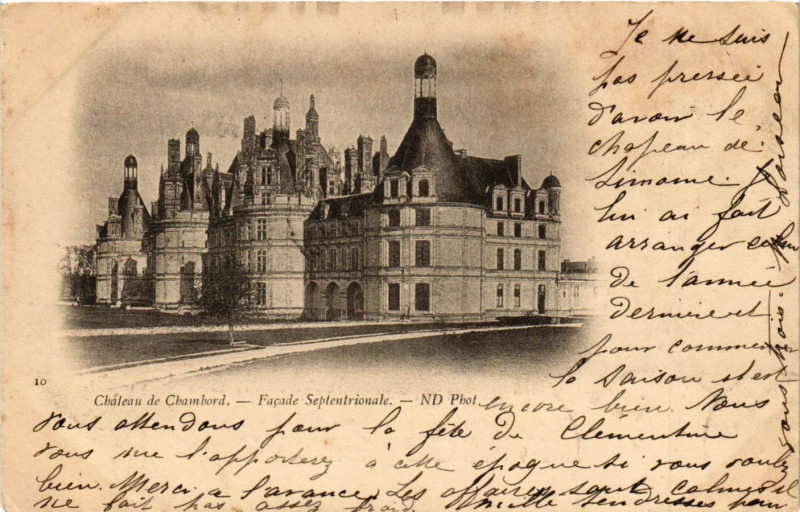 Je ne suis
pas pressée
d'avoir le
chapeau de
Simone. Je
lui ai fait
arranger celui
de l'année
dernière et
pour commencer
la saison c'est
10
Château de Chambord. — Façade Septentrionale. — ND Phot.
encore bien. Nous
vous attendons pour la fête de Clémentine
vous me l'apporterez à cette époque si vous voulez
bien. Merci à l'avance. Les affaires sont calmes il
ne fait pas assez froid. Mille tendresses pour
vous trois.